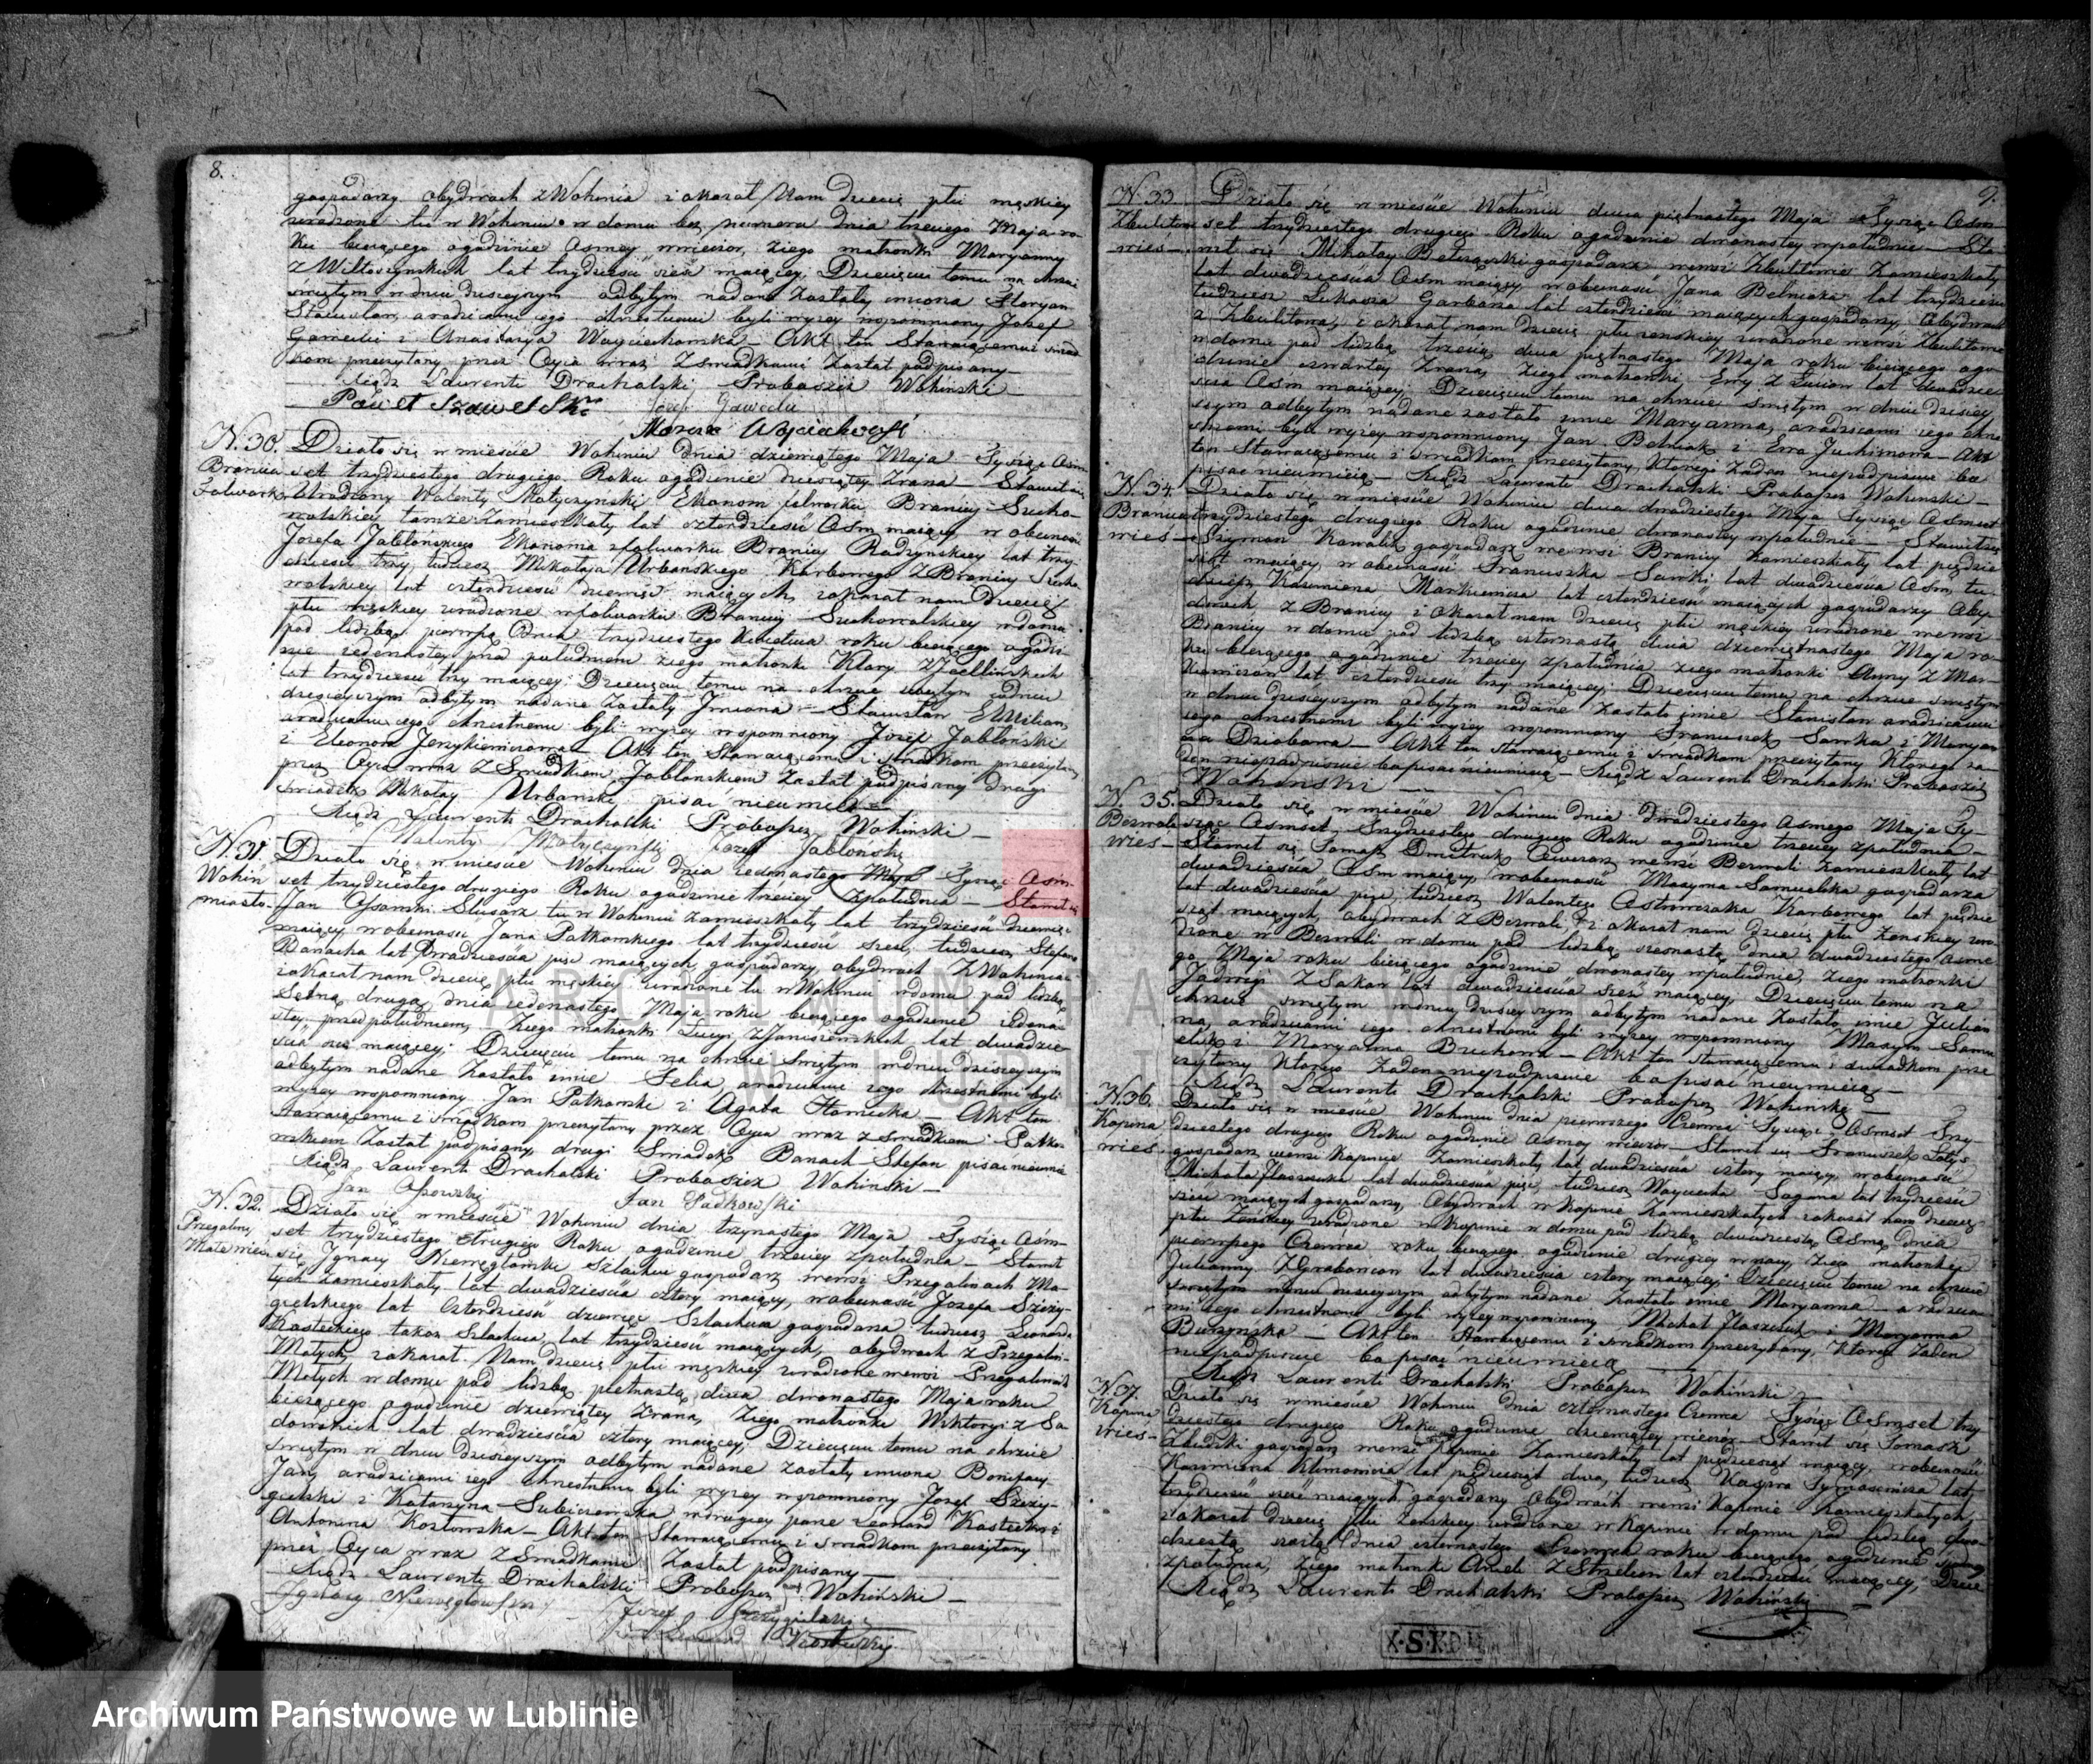 8.
gospodarzy obydwóch z Wohinia i okazał Nam Dziecię płci męskiey
urodzone tu w Wohiniu w domu bez numeru dnia trzeciego Maja ro-
ku bieżącego o godzinie Osmey wieczor, z iego małżonki Maryanny
lat trzydzieści sześć maiącey. Dziecięciu temu na chrzcie
świętym w dniu dzisieyszym odbytym nadane zostały imiona Floryan
Stanisław, a rodzicami iego chrzestnemi byli wyżey wspomniony Jozef
i Anastazya Woyciechowska — Akt ten Stawaiącemu i świad
kom przeczytany przez Oyca wraz z Swiadkami Został podpisany —
Xiądz Laurenti Drachalski Proboszcz Wohiński —
N. 30.
Branica
Folwark
Działo się w mieście Wohiniu dnia dziewiątego Maja Tysiąc Osm-
set trzydziestego drugiego Roku o godzinie dziesiątey Zrana — Stawił się
Urodzony Walenty Małyczynski Ekonom folwarku Branicy Sucho-
wolskiey tamże Zamieszkały lat czterdzieści Osm maiący w obecności
Jozefa Jabłonskiego Ekonoma z folwarku Branicy Radzynskiey lat trzy-
dzieści trzy, tudzież Mikołaja Urbanskiego Karbowego z Branicy Sucho
wolskiey lat czterdzieści dziewięć maiących, i okazał nam Dziecię
płci męskiey urodzone w folwarku Branicy Suchowolskiey w domu
pod liczbą pierwszą Dnia trzydziestego Kwietnia roku bieżącego o godzi-
nie iedenastey przed południem z iego małżonki Klary
lat trzydzieści trzy maiącey; Dziecięciu temu na chrzcie świętym w dniu
dzisieyszym odbytym nadane Zostały Imiona — Stanisław Emilian
a rodzicami iego chrzestnemi byli wyżey wspomniony Jozef Jabłoński
i Eleonora Jerzykiewiczowa — Akt ten Stawaiącemu i świadkom przeczytany
przez Oyca wraz z Swiadkiem Jabłonskiem Został podpisany drugi
świadek Mikołay Urbanski pisać nieumie —
Xiądz Laurenti Drachalski Proboszcz Wohinski —
Walenty Małyczynski Jozef Jabłoński
N. 31.
Wohin
miasto
Działo się w mieście Wohiniu dnia iedenastego Maja Tysiąc Osm-
set trzydziestego drugiego Roku o godzinie trzeciey z południa — Stawił się
Jan Slusarz tu w Wohiniu Zamieszkały lat trzydzieści dziewięć
maiący w obecności Jana Patkowskiego lat trzydzieści sześć, tudzież Stefana
Banacha lat Dwadzieścia pięć maiących, gospodarzy, obydwóch z Wohinia
i okazał nam dziecię płci męskiey urodzone tu w Wohiniu w domu pod liczbą
Setną drugą, dnia iedenastego Maja roku bieżącego o godzinie iedena-
stey przed południem, z iego małżonki Lucyi z Janiszewskich lat dwadzie-
ścia maiącey; Dziecięciu temu na chrzcie świętym w dniu dzisieyszym
odbytym nadane Zostało imie Felix, a rodzicami iego chrzestnemi byli
wyżey wspomniony Jan Patkowski i Agata — Akt ten
stawaiącemu i świadkom przeczytany przez Oyca wraz z świadkiem Patko-
wskiem Został podpisany, drugi Swiadek Banach Stefan pisać nieumie
Xiądz Laurenti Drachalski Proboszcz Wohinski —
Jan Jan Padkowski
N. 32.
Przegaliny
Małe wieś
Działo się w mieście Wohiniu dnia trzynastego Maja Tysiąc Osm-
set trzydziestego drugiego Roku o godzinie trzeciey z południa — Stawił
się Ignacy Niewęgłowski Szlachcic gospodarz we wsi Przegalinach Ma-
łych Zamieszkały lat dwadzieścia cztery maiący, w obecności Jozefa Szczy-
gielskiego lat Czterdzieści dziewięć Szlachcica gospodarza tudzież Leonarda
Kosteckiego także Szlachcica, lat trzydzieści maiących, obydwóch z Przegalin
Małych, i okazał Nam dziecię płci męskiey urodzone we wsi Przegalinach
Małych w domu pod liczbą piętnastą, dnia dwunastego Maja roku
bieżącego o godzinie dziewiątey Zrana, z iego małżonki Wiktoryi z Sa-
dowskich lat dwadzieścia cztery maiącey; Dziecięciu temu na chrzcie
świętym w dniu dzisieyszym odbytym nadane zostały imiona Bonifacy
Jan, a rodzicami iego chrzestnemi byli wyżey wspomniony Jozef Szczy-
gielski i Katarzyna w drugiey parze Leonard Kostecki i
Antonina Kozłowska — Akt ten Stawaiącemu i świadkom przeczytany
przez Oyca wraz z Swiadkami Został podpisany —
Xiądz Laurenti Drachalski Proboszcz Wohiński —
Jgnacy Niewęgłowski Jozef Szczygielski
9.
N. 33.
Zbulitow
wieś —
Działo się w mieście Wohiniu dnia piętnastego Maja Tysiąc Osm
set trzydziestego drugiego Roku o godzinie dwunastey w południe — Sta
wił się Mikołay gospodarz we wsi Zbulitowie Zamieszkały
lat dwadzieścia Osm maiący w obecności Jana Belniaka lat trzydzieści
tudzież Łukasza Garbarza lat czterdzieści maiących gospodarzy, Obydwoch
z Zbulitowa, i okazał nam dziecię płci żenskiey urodzone we wsi Zbulitowie
w domu pod liczbą trzecią dnia piętnastego Maja roku bieżącego o go
dzinie czwartey Zrana, z iego małżonki Ewy lat dwadzie-
ścia Osm maiącey; Dziecięciu temu na chrzcie świętym w dniu dzisiey
szym odbytym nadane zostało imie Maryanna, a rodzicami iego chrze
stnemi byli wyżey wspomniony Jan Belniak i Ewa Juchimowa — Akt
ten Stawaiącemu i świadkom przeczytany, Którego Żaden niepodpisuie bo
pisać nieumieią — Xiądz Laurenti Drachalski Proboszcz Wohinski —
N. 34.
Branica
wieś —
Działo się w mieście Wohiniu dnia dwudziestego Maja Tysiąc Osmset
trzydziestego drugiego Roku o godzinie dwunastey w południe — Stawił się
Szymon Kowalik gospodarz we wsi Branicy Zamieszkały lat pięćdzie
siąt maiący, w obecności Franciszka Sawki lat dwadzieścia Osm, tu-
dzież Kazimierza Markiewicza lat czterdzieści maiących gospodarzy Oby-
dwóch z Branicy i okazał nam dziecię płci męskiey urodzone we wsi
Branicy w domu pod liczbą czternastą dnia dziewiętnastego Maja ro-
ku bieżącego o godzinie trzeciey z południa z iego małżonki Anny z Mar-
lat czterdzieści trzy maiącey; Dziecięciu temu na chrzcie świętym
w dniu dzisieyszym odbytym nadane Zostało imie Stanisław a rodzicami
iego chrzestnemi byli wyżey wspomniony Franciszek Sawka i Maryan
na Dziobowa — Akt ten stawaiącemu i świadkom przeczytany Którego Ża-
den niepodpisuie bo pisać nieumieią — Xiądz Laurenti Drachalski Proboszcz
Wohinski —
N. 35.
Bezwola
wieś —
Działo się w mieście Wohiniu dnia dwudziestego Osmego Maja Ty-
siąc Osmset Trzydziestego drugiego Roku o godzinie trzeciey z południa —
Stawił się Tomasz Dmitruk we wsi Bezwoli Zamieszkały lat
dwadzieścia Osm maiący, w obecności Maxyma gospodarza
lat dwadzieścia pięć, tudzież Walentego Karbowego lat pięćdzie
siąt maiących, obydwóch z Bezwoli, i okazał nam dziecię płci Żenskiey uro-
dzone w Bezwoli w domu pod liczbą szesnastą dnia dwudziestego Osme
go Maja roku bieżącego o godzinie dwunastey w południe, z iego małżonki
Jadwigi lat dwadzieścia sześć maiącey, Dziecięciu temu na
chrzcie świętym w dniu dzisieyszym odbytym nadane Zostało imie Julian
na, a rodzicami iego chrzestnemi byli wyżey wspomniony Maxym
i Maryanna — Akt ten stawaiącemu i świadkom prze
czytany Którego Żaden niepodpisuie bo pisać nieumieią —
Xiądz Laurenti Drachalski Proboszcz Wohinski —
N. 36.
Kopina
wieś.
Działo się w mieście Wohiniu dnia pierwszego Czerwca Tysiąc Osmset Trzy-
dziestego drugiego Roku o godzinie Osmey wieczor — Stawił się Franciszek
gospodarz we wsi Kopinie Zamieszkały lat dwadzieścia cztery maiący, w obecności
Michała lat dwadzieścia pięć, tudzież Woyciecha lat trzydzieści
maiących gospodarzy, Obydwóch w Kopinie Zamieszkałych i okazał nam dziecię
płci Żenskiey urodzone w Kopinie w domu pod liczbą dwudziestą Osmą dnia
pierwszego Czerwca roku bieżącego o godzinie drugiey w nocy z iego małżonki
Julianny lat dwadzieścia cztery maiącey; Dziecięciu temu na chrzcie
świętym w dniu dzisieyszym odbytym nadane Zostało imie Maryanna — a rodzica-
mi iego chrzestnemi byli wyżey wspomniony Michał i Maryanna
— Akt ten stawaiącemu i świadkom przeczytany, Którego Żaden
niepodpisuie bo pisać nieumieią —
Xiądz Laurenti Drachalski Proboszcz Wohiński —
N. 37.
Kopina
wieś —
Działo się w mieście Wohiniu dnia czternastego Czerwca Tysiąc Osmset trzy
dziestego drugiego Roku o godzinie dziewiątey wieczor — Stawił się Tomasz
gospodarz we wsi Kopinie Zamieszkały lat pięćdziesiąt maiący, w obecności
Kazimierza Klimowicza lat pięćdziesiąt dwa, tudzież Kacpra lat
trzydzieści maiących gospodarzy Obydwóch we wsi Kopinie Zamieszkałych,
i okazał dziecię płci żenskiey urodzone w Kopinie w domu pod liczbą dwu-
dziestą szóstą dnia czternastego Czerwca roku bieżącego o godzinie
z południa, z iego małżonki Anieli lat czterdzieści maiącey; Dzie
Xiądz Laurenti Drachalski Proboszcz Wohiński —
X·S·K·D·L
ARCHIWUM PAŃSTWOWE
W LUBLINIE
Archiwum Państwowe w Lublinie